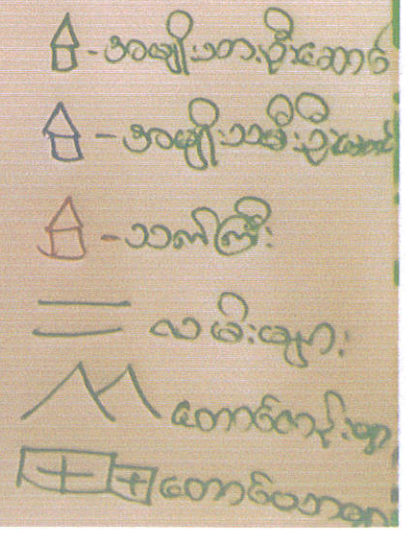 - အမျိုးသားဦးဆောင်
- အမျိုးသမီးဦးဆောင်
- သက်ကြီး
လမ်းများ
တောင်တန်းများ